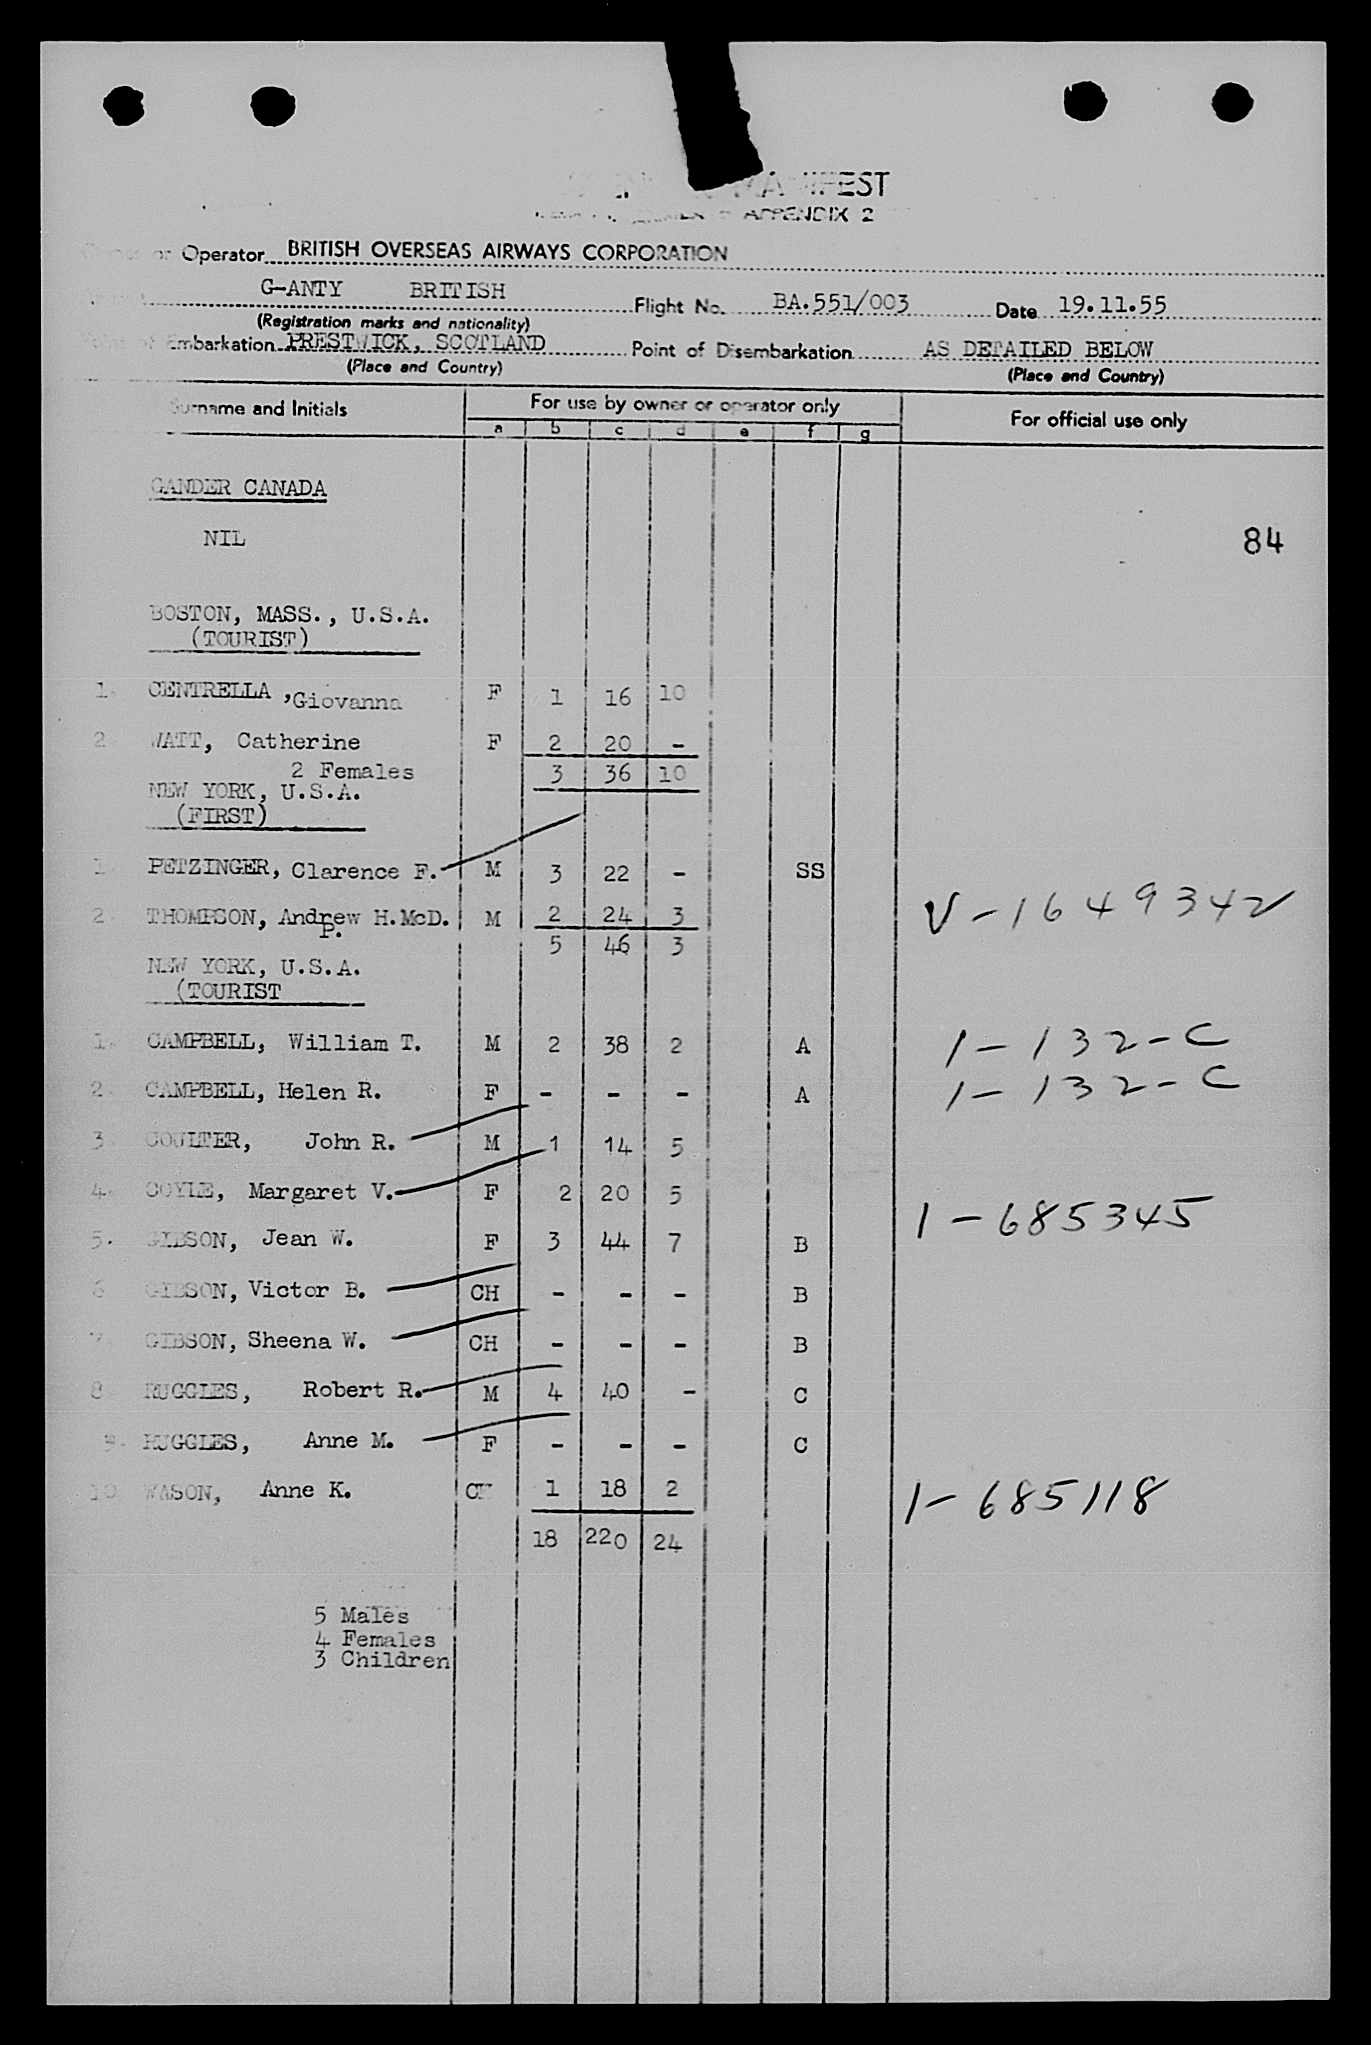 MANIFEST
APPENDIX 2
or Operator BRITISH OVERSEAS AIRWAYS CORPORATION
G-ANTY BRITISH Flight No. BA.551/003 Date 19.11.55
(Registration marks and nationality)
Embarkation PRESTWICK, SCOTLAND Point of Disembarkation AS DETAILED BELOW
(Place and Country) (Place and Country)
Surname and Initials For use by owner or operator only For official use only
a b c d e f g
GANDER CANADA
NIL 84
BOSTON, MASS., U.S.A.
(TOURIST)
1. CENTRELLA, Giovanna F 1 16 10
2 WATT, Catherine F 2 20 -
2 Females 3 36 10
NEW YORK, U.S.A.
(FIRST)
1 PETZINGER, Clarence F. M 3 22 - SS
2. THOMPSON, Andrew H.McD. M 2 24 3 V-1649342
P. 5 46 3
NEW YORK, U.S.A.
(TOURIST
1. CAMPBELL, William T. M 2 38 2 A 1-132-C
2. CAMPBELL, Helen R. F - - - A 1-132-C
3. COULTER, John R. M 1 14 5
4. COYLE, Margaret V. F 2 20 5 1-685345
5. GIBSON, Jean W. F 3 44 7 B
6 GIBSON, Victor B. CH - - - B
7. GIBSON, Sheena W. CH - - - B
8 RUGGLES, Robert R. M 4 40 - C
9. RUGGLES, Anne M. F - - - C
10 WASON, Anne K. CH 1 18 2 1-685118
18 220 24
5 Males
4 Females
3 Children